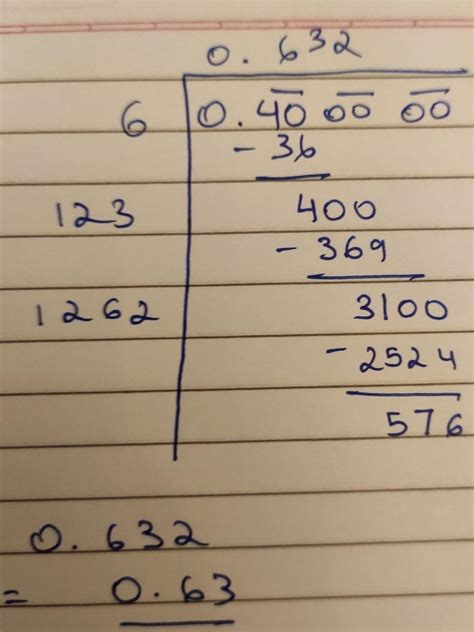 0.632
6 0.40 00 00
- 36
123 400
- 369
1262 3100
- 2524
576
0.632
= 0.63